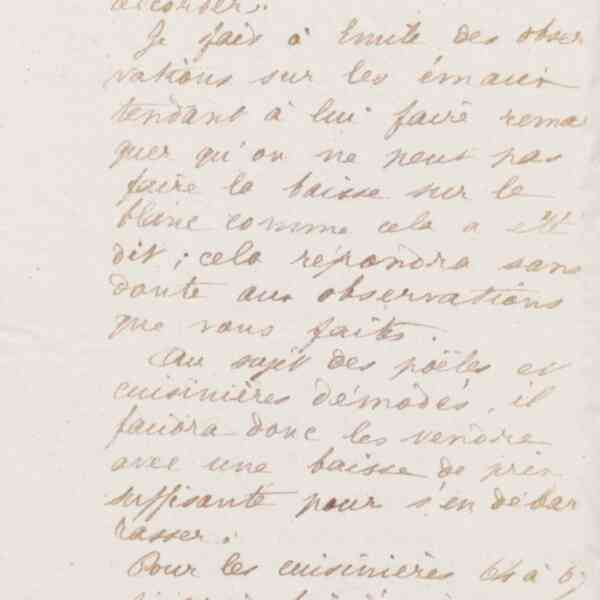 accorder.
Je fais à Emile des obser
vations sur les émaux
tendant à lui faire remar
quer qu'on ne peut pas
faire la baisse sur le
blanc comme cela a été
dit ; cela répondra sans
doute aux observations
que vous faites.
Au sujet des poëles et
cuisinières démodés, il
faudra donc les vendre
avec une baisse de prix
suffisante pour s'en débar
rasser.
Pour les cuisinières 64 à